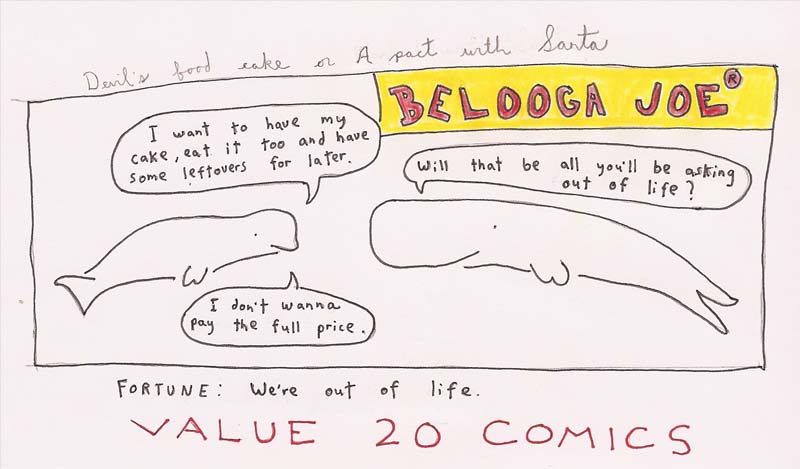 Devil's food cake or A pact with Santa
BELOOGA JOE®
I want to have my
cake, eat it too and have
some leftovers for later.
Will that be all you'll be asking
out of life?
I don't wanna
pay the full price.
FORTUNE: We're out of life.
VALUE 20 COMICS